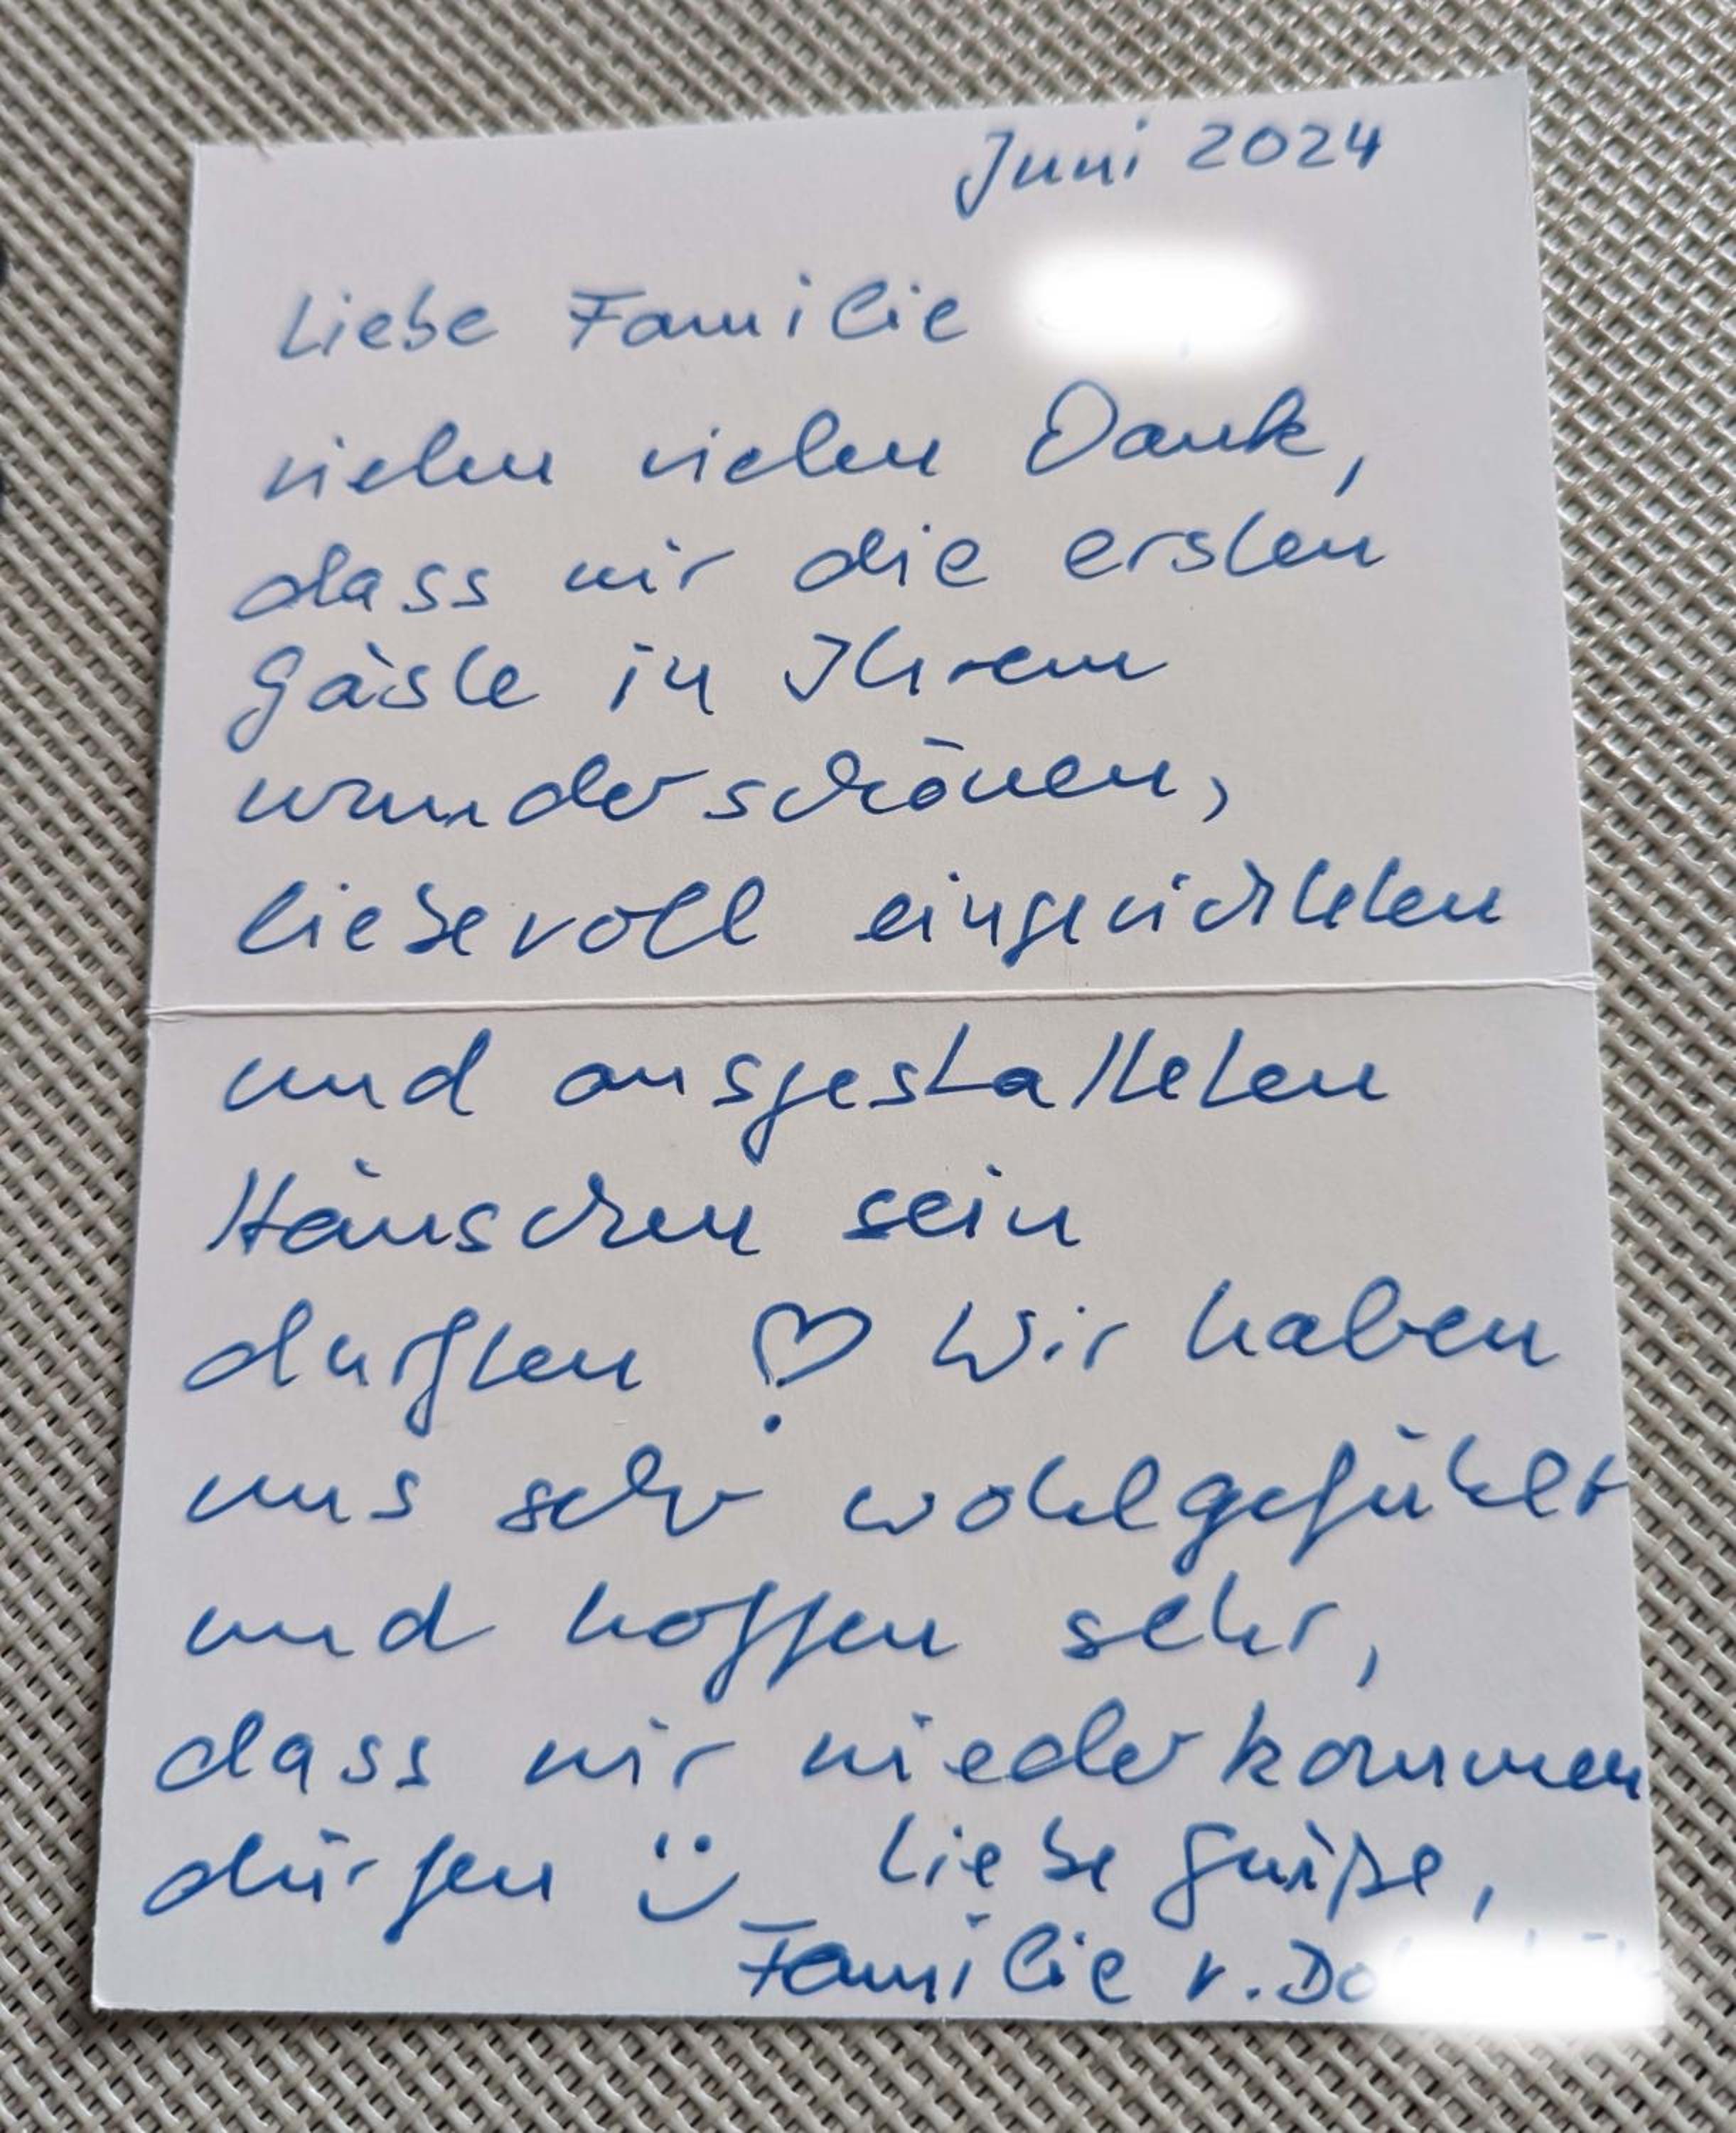 Juni 2024
Liebe Familie
vielen vielen Dank,
dass wir die ersten
Gäste in Ihrem
wunderschönen,
liebevoll eingerichteten
und ausgestatteten
Häuschen sein
durften ♡ Wir haben
uns sehr wohlgefühlt
und hoffen sehr,
dass wir wiederkommen
dürfen :) Liebe Grüße,
Familie v. Do